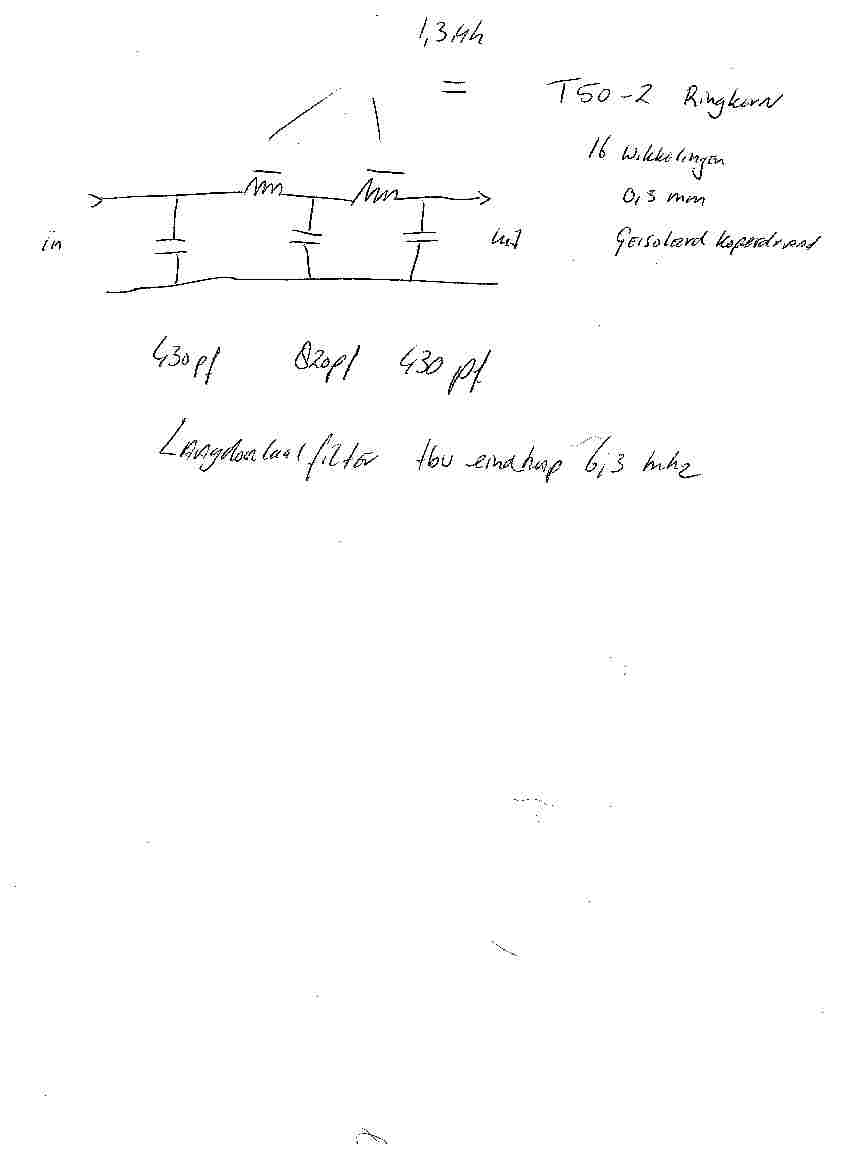 1,3 µh
= T50-2 Ringkern
16 Wikkelingen
0,5 mm
in uit Geisoleerd koperdraad
430 pf 820pf 430 pf
Laagdoorlaat filter tbv eindtrap 6,3 mhz